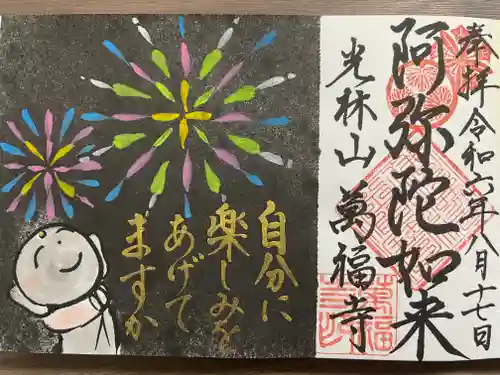 奉拝 令和六年八月十七日
阿弥陀如来
光林山 萬福寺
自分に
楽しみを
あげて
ますか